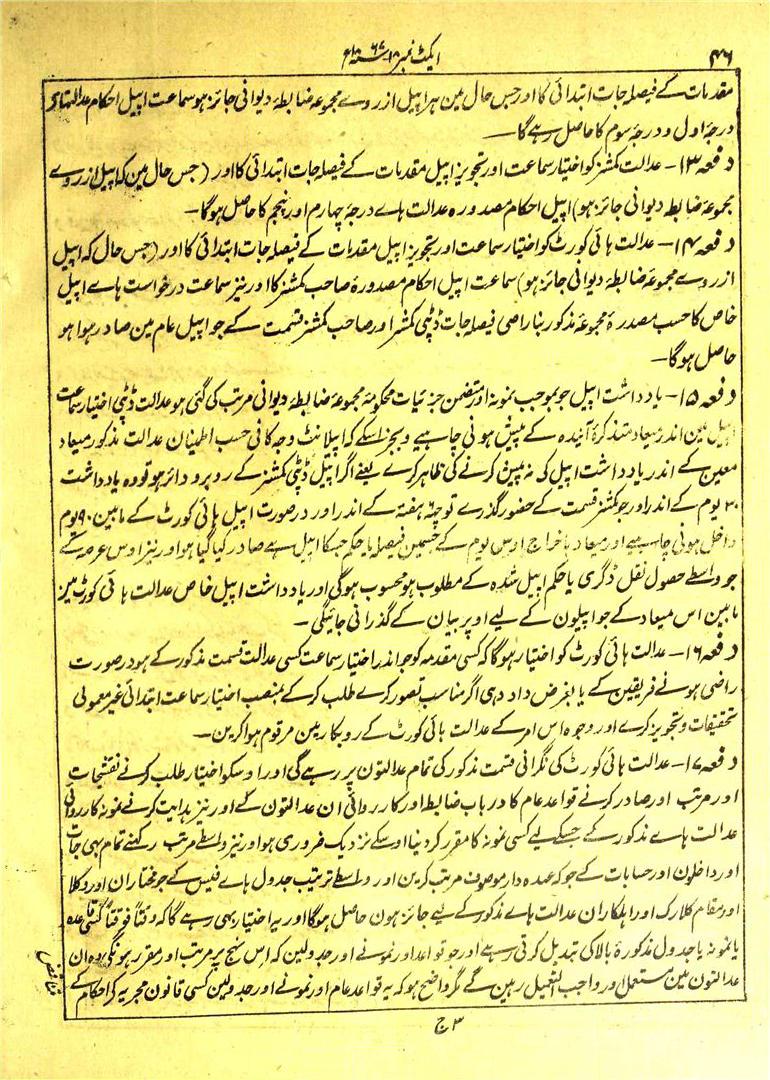 ۴۶
ایکٹ نمبر ۱۸ سنہ ۱۸۶۷ع
مقدمات کے فیصلہ جات ابتدائی کا اور جس حال مین ہر اپیل ازروے مجموعہ ضابطہ دیوانی جائز ہو سماعت اپیل احکام عدالتہاے
درجۂ اول و درجۂ سوم کا حاصل رہے گا۔
دفعہ ۱۳۔ عدالت کمشنر کو اختیار سماعت اور تجویز اپیل مقدمات کے فیصلہ جات ابتدائی کا اور (جس حال مین کہ اپیل ازروے
مجموعۂ ضابطہ دیوانی جائز ہو) اپیل احکام مصدورہ عدالت ہاے درجہ چہارم اور پنجم کا حاصل ہوگا۔
دفعہ ۱۴۔ عدالت ہائی کورٹ کو اختیار سماعت اور تجویز اپیل مقدمات کے فیصلہ جات ابتدائی کا اور (جس حال کہ اپیل
ازروے مجموعۂ ضابطہ دیوانی جائز ہو) سماعت اپیل احکام مصدورۂ صاحب کمشنر کا اور نیز سماعت درخواست ہاے اپیل
خاص کا حسب مصدرۂ مجموعہ مذکور بناراضی فیصلہ جات ڈپٹی کمشنر اور صاحب کمشنر قسمت کے جو اپیل عام مین صادر ہوا ہو
حاصل ہوگا۔
دفعہ ۱۵۔ یادداشت اپیل جو بموجب نمونہ اور متضمن جزئیات محکومۂ مجموعہ ضابطۂ دیوانی مرتب کی گئی ہو عدالت ذی اختیار سماعت
اپیل مین اندر میعاد متذکرۂ آئیندہ کے پیش ہونی چاہیے و بجز اسکے کہ اپیلانٹ وجہ کافی حسب اطمینان عدالت مذکور میعاد
معین کے اندر یادداشت اپیل کی نہ پیش کرنے کی ظاہر کرے یعنے اگر اپیل ڈپٹی کمشنر کے روبرو دائر ہو تو وہ یادداشت
۳۰ یوم کے اندر اور جو کمشنر قسمت کے حضور گذرے تو چھہ ہفتہ کے اندر اور درصورت اپیل ہائی کورٹ کے مابین ۹۰ یوم
داخل ہونی چاہیے اور میعاد باخراج اوس یوم کے جسمین فیصلہ یا حکم جسکا اپیل ہے صادر کیا گیا ہو اور نیز اوس عرصہ کے
جو واسطے حصول نقل ڈگری یا حکم اپیل شدہ کے مطلوب ہو محسوب ہوگی اور یادداشت اپیل خاص عدالت ہائی کورٹ مین
مابین اس میعاد کے جو اپیلون کے لیے اوپر بیان کے گذرانی جائیگی۔
دفعہ ۱۶۔ عدالت ہائی کورٹ کو اختیار ہوگا کہ کسی مقدمہ کو جو اندر اختیار سماعت کسی عدالت قسمت مذکور کے ہو درصورت
راضی ہونے فریقین کے یا بغرض داد دہی اگر مناسب تصور کرے طلب کرکے بمنصب اختیار سماعت ابتدائی غیر معمولی
تحقیقات و تجویز کرے اور وجوہ اس امر کے عدالت ہائی کورٹ کے روبکار مین مرقوم ہوا کرین۔
دفعہ ۱۷۔ عدالت ہائی کورٹ کی نگرانی قسمت مذکور کی تمام عدالتون پر رہے گی اور اوسکو اختیار طلب کرنے نقشجات
اور مرتب اور صادر کرنے قواعد عام کا درباب ضابطہ اور کارروائی ان عدالتون کے اور نیز ہدایت کرنے نمونہ کارروائی
عدالت ہاے مذکور کے جسکے لیے کسی نمونہ کا مقرر کردینا اوسکے نزدیک ضروری ہو اور نیز واسطے مرتب رکھنے تمام بہی جات
اور داخلون اور حسابات کے جو کہ عہدہ دار موصوف مرتب کرین اور واسطے ترتیب جدول ہاے فیس کے جو مختاران اور وکلا
اور مقام کلارک اور اہلکاران عدالت ہاے مذکور کے لیے جائز ہون حاصل ہوگا اور یہ اختیار بھی رہے گا کہ وقتاً فوقتاً کسی قاعدہ
یا نمونہ یا جدول مذکورۂ بالا کی تبدیل کرتی رہے اور جو قواعد اور نمونے اور جدولین کہ اس نہج پر مرتب اور مقرر ہونگی وہ ان
عدالتون مین مستعمل اور واجب التعمیل رہین گے مگر واضح ہو کہ یہ قواعد عام اور نمونے اور جدولین کسی قانون مجریہ کے احکام کے
تناقض
۳ ج